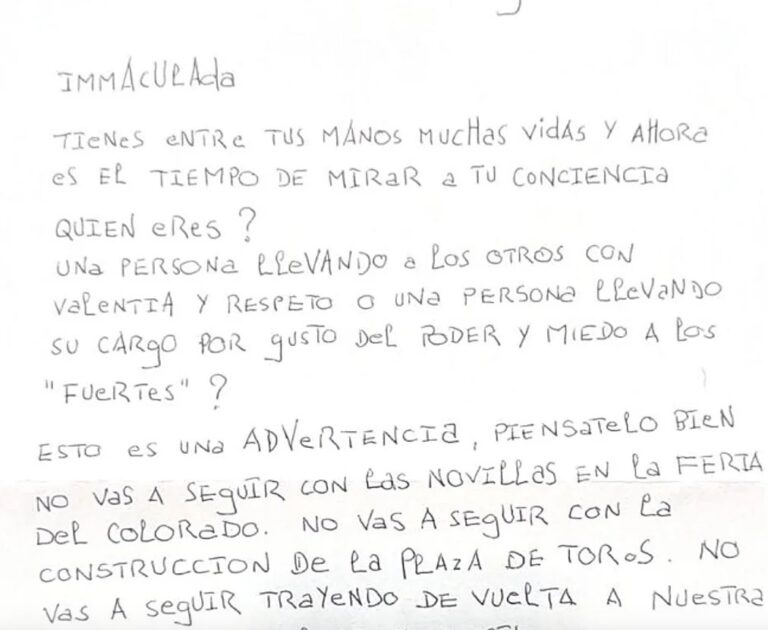 IMMACULADA
TIENES ENTRE TUS MANOS MUCHAS VIDAS Y AHORA
ES EL TIEMPO DE MIRAR A TU CONCIENCIA
QUIEN ERES ?
UNA PERSONA LLEVANDO A LOS OTROS CON
VALENTIA Y RESPETO O UNA PERSONA LLEVANDO
SU CARGO POR GUSTO DEL PODER Y MIEDO A LOS
"FUERTES" ?
ESTO ES UNA ADVERTENCIA, PIENSATELO BIEN
NO VAS A SEGUIR CON LAS NOVILLAS EN LA FERIA
DEL COLORADO. NO VAS A SEGUIR CON LA
CONSTRUCCION DE LA PLAZA DE TOROS. NO
VAS A SEGUIR TRAYENDO DE VUELTA A NUESTRA